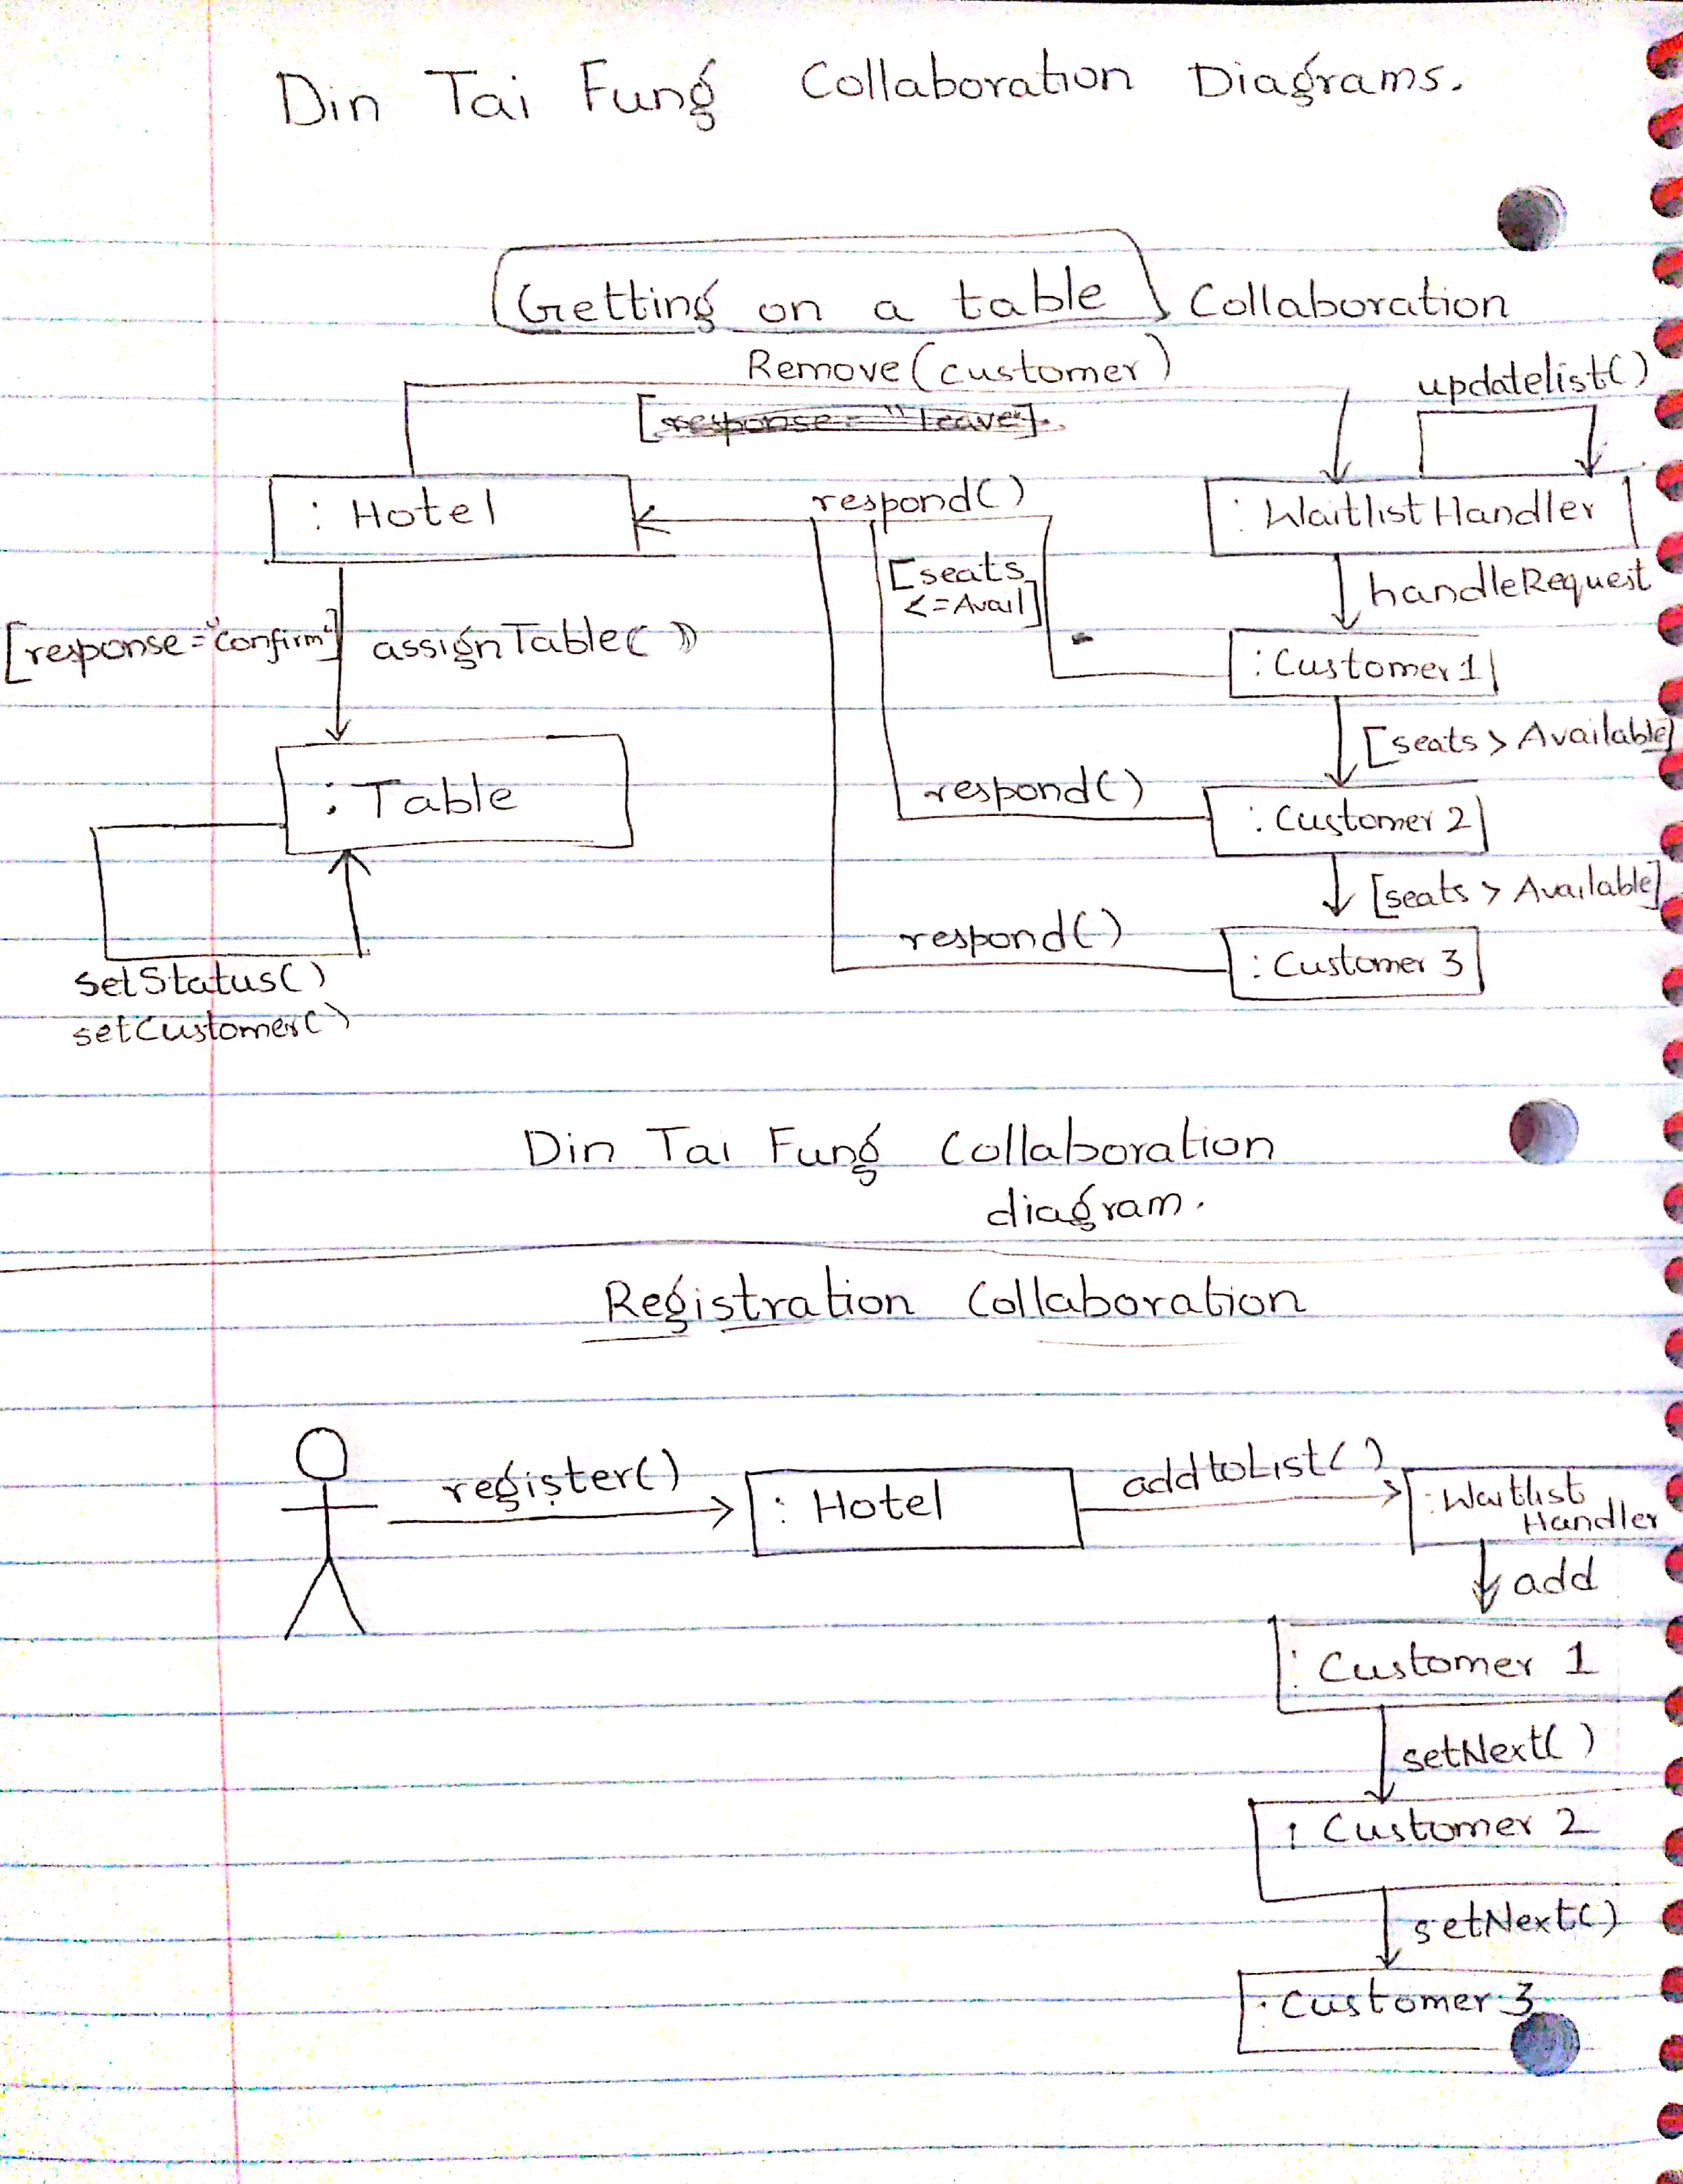 Din Tai Fung Collaboration Diagrams.
Getting on a table Collaboration
Remove(customer)
[response = "leave"].
updatelist()
: Hotel
respond()
: WaitlistHandler
[seats
<=Avail]
handleRequest
[response="confirm"] assignTable()
: Customer 1
[seats > Available]
: Table
respond()
: Customer 2
[seats > Available]
respond()
: Customer 3
setStatus()
setCustomer()
Din Tai Fung Collaboration
diagram.
Registration Collaboration
register()
: Hotel
addtoList()
: Waitlist
Handler
add
: Customer 1
setNext()
: Customer 2
setNext()
: Customer 3